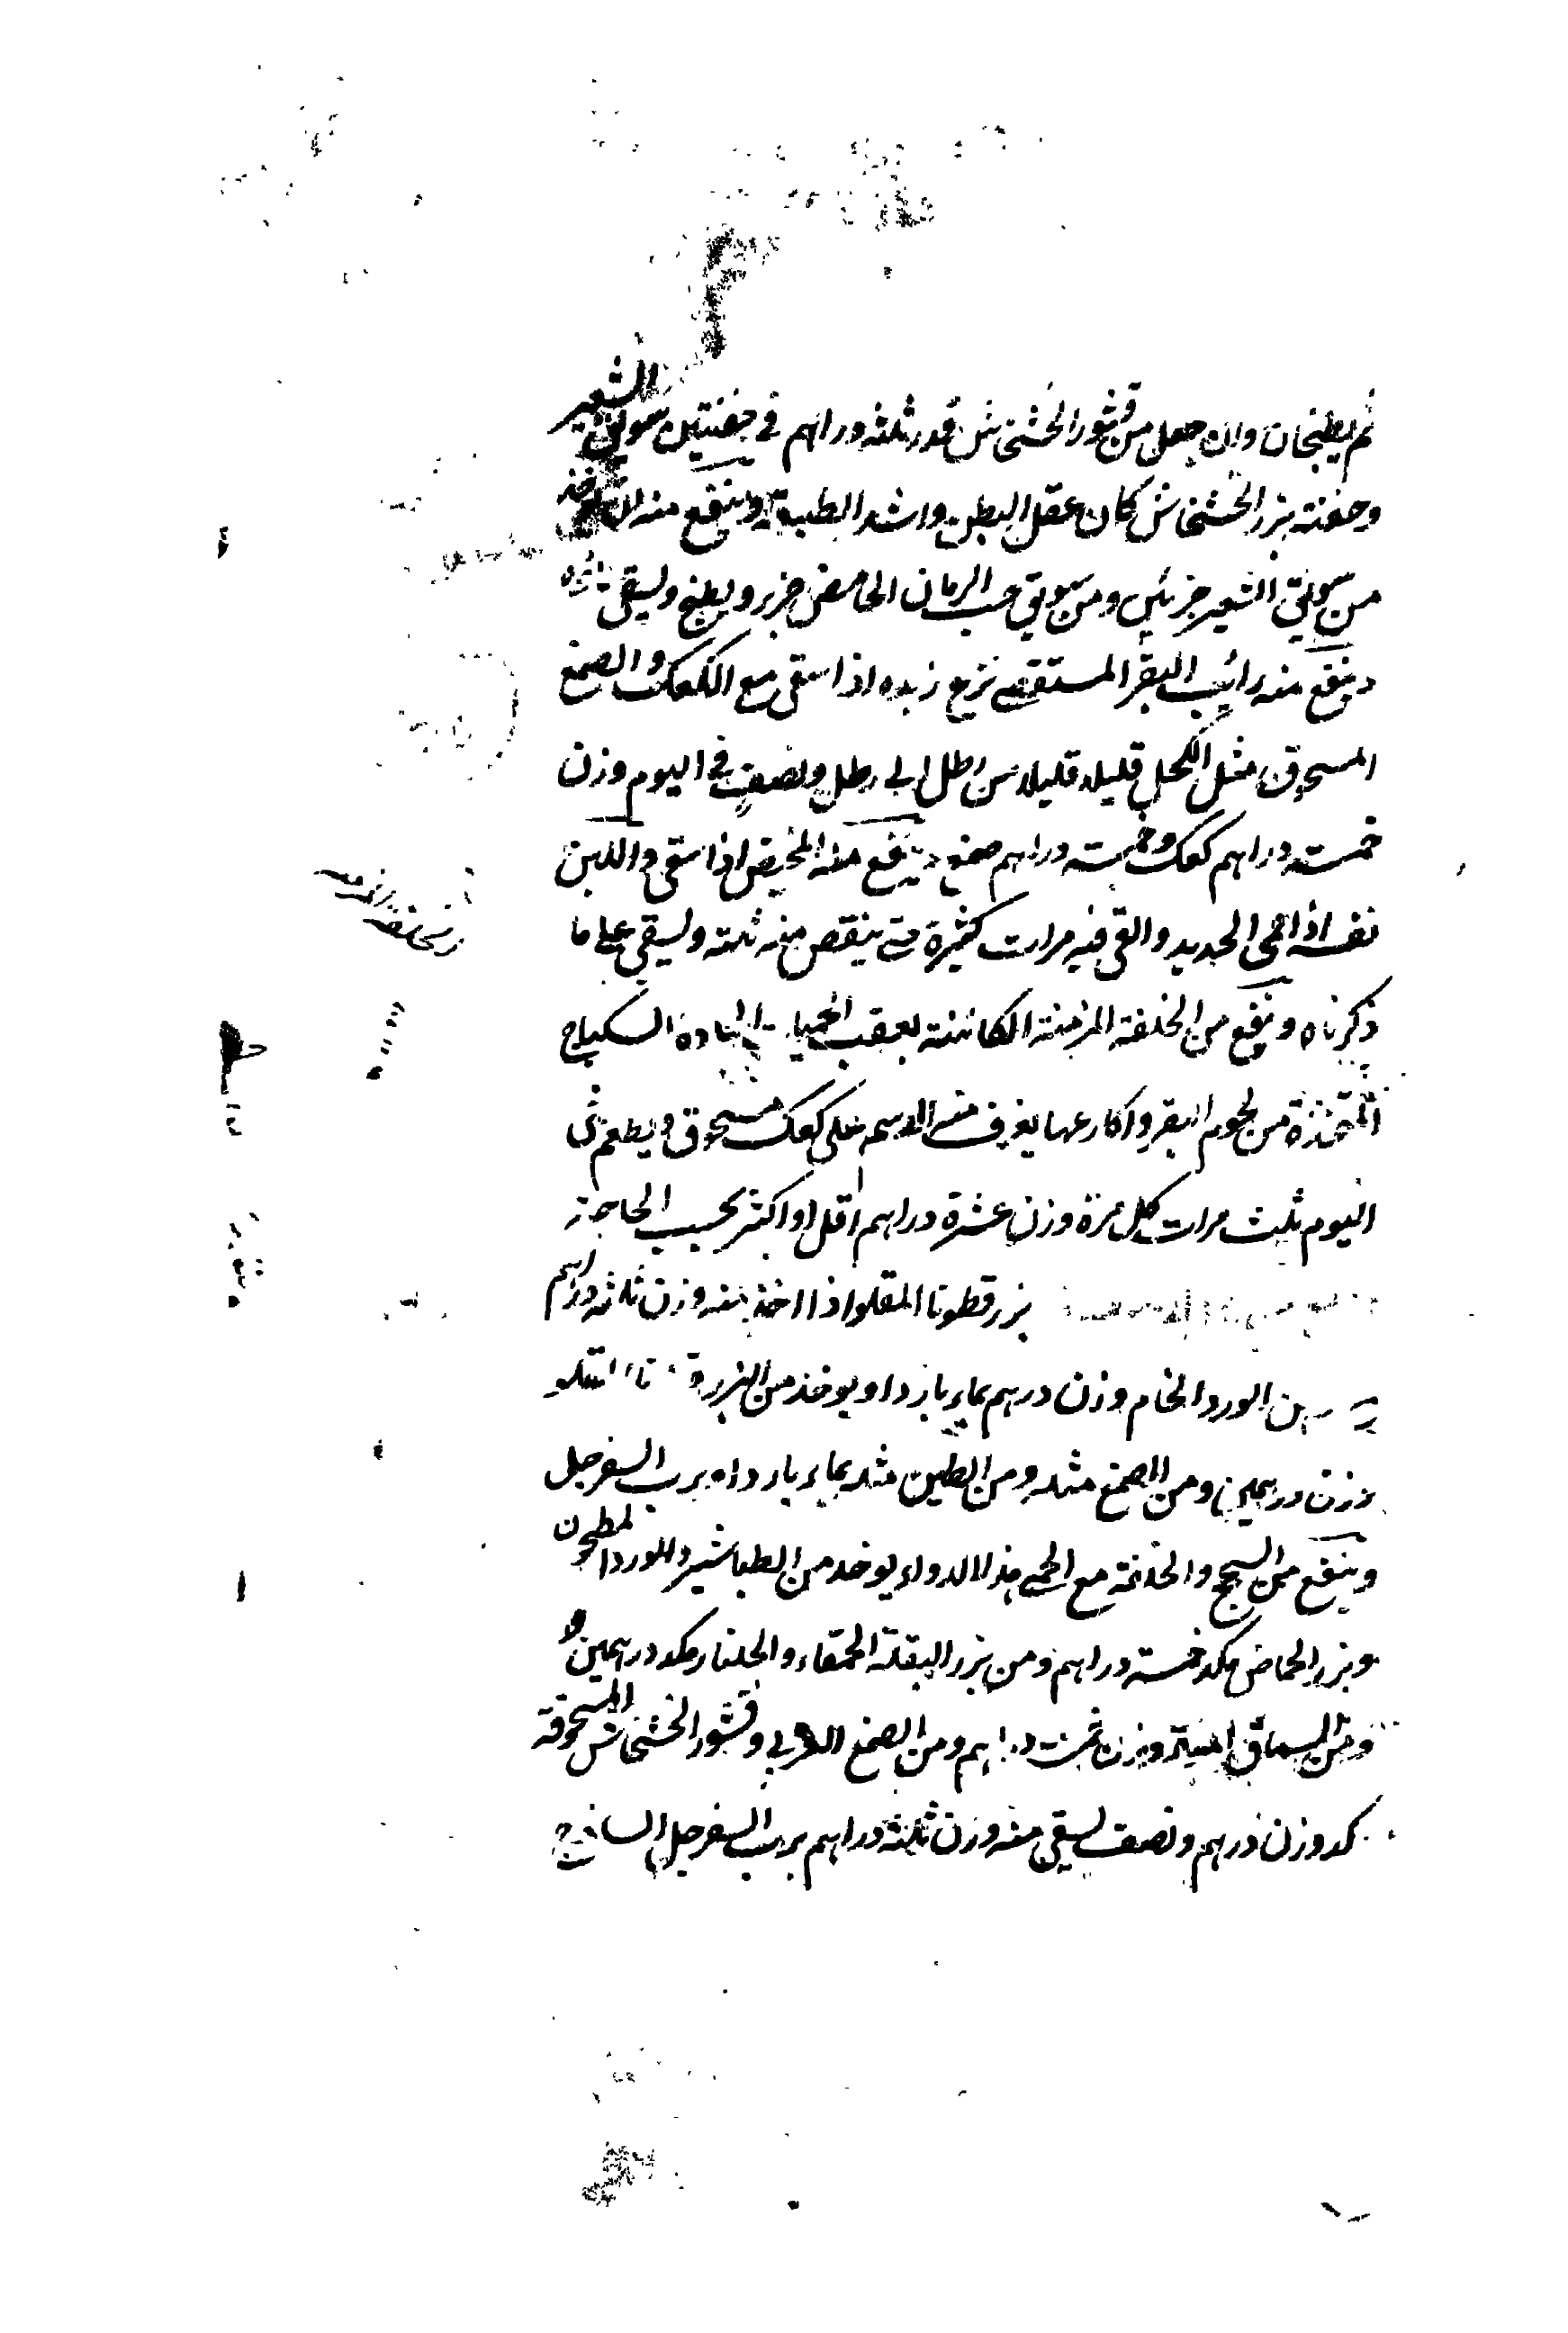 ثم يطبخان وان جعل من قشور الخشخاش قدر ثلثة دراهم في حفنتين سويق الشعير
وحفنة بزر الخشخاش كان عقل البطن واشد الطبيعة وينفع منه
من سويق الشعير جزئين ومن سويق حب الرمان الحامض جزء ويطبخ ويسقى
وينفع منه رائب البقر المستقصى نزع زبده اذا سقى مع الكعك والصمغ
المسحوق مثل الكحل قليلا قليلا من رطل الى رطل ونصف في اليوم وزن
خمسة دراهم كعك وخمسة دراهم صمغ وينفع منه المخيض اذا سقى واللبن
نفسه اذا احمى الحديد والقى فيه مرارت كثيرة حتى ينقص منه ثلثه ويسقى على ما
ذكرناه وينفع من الخلفة المزمنة الكائنة بعقب الحميات الحادة السكباج
المتخذة من لحوم البقر واكارعها يغرف منه الدسمه على كعك مسحوق ويطعم في
اليوم ثلث مرات كل مرة وزن عشرة دراهم اقل او اكثر بحسب الحاجة
بزر قطونا المقلو اذا اخذ منه وزن ثلاثه دراهم
من الورد الخام وزن درهم بماء بارد او يوخذ من البزر المقلو
وزن درهمين ومن الصمغ مثله ومن الطين مثله بماء بارد او برب السفرجل
وينفع من السحج والخلفة مع الحمى هذا الدواء يوخد من الطباشير والورد المطحون
وبزر الحماض مكد خمسة دراهم ومن بزر البقلة الحمقاء والجلنار مكد درهمين
ومن السماق وزن خمسة دراهم ومن الصمغ العربي وقشور الخشخاش المسحوقة
كد وزن درهم ونصف يسقى منه وزن ثلثة دراهم برب السفرجل الساذج